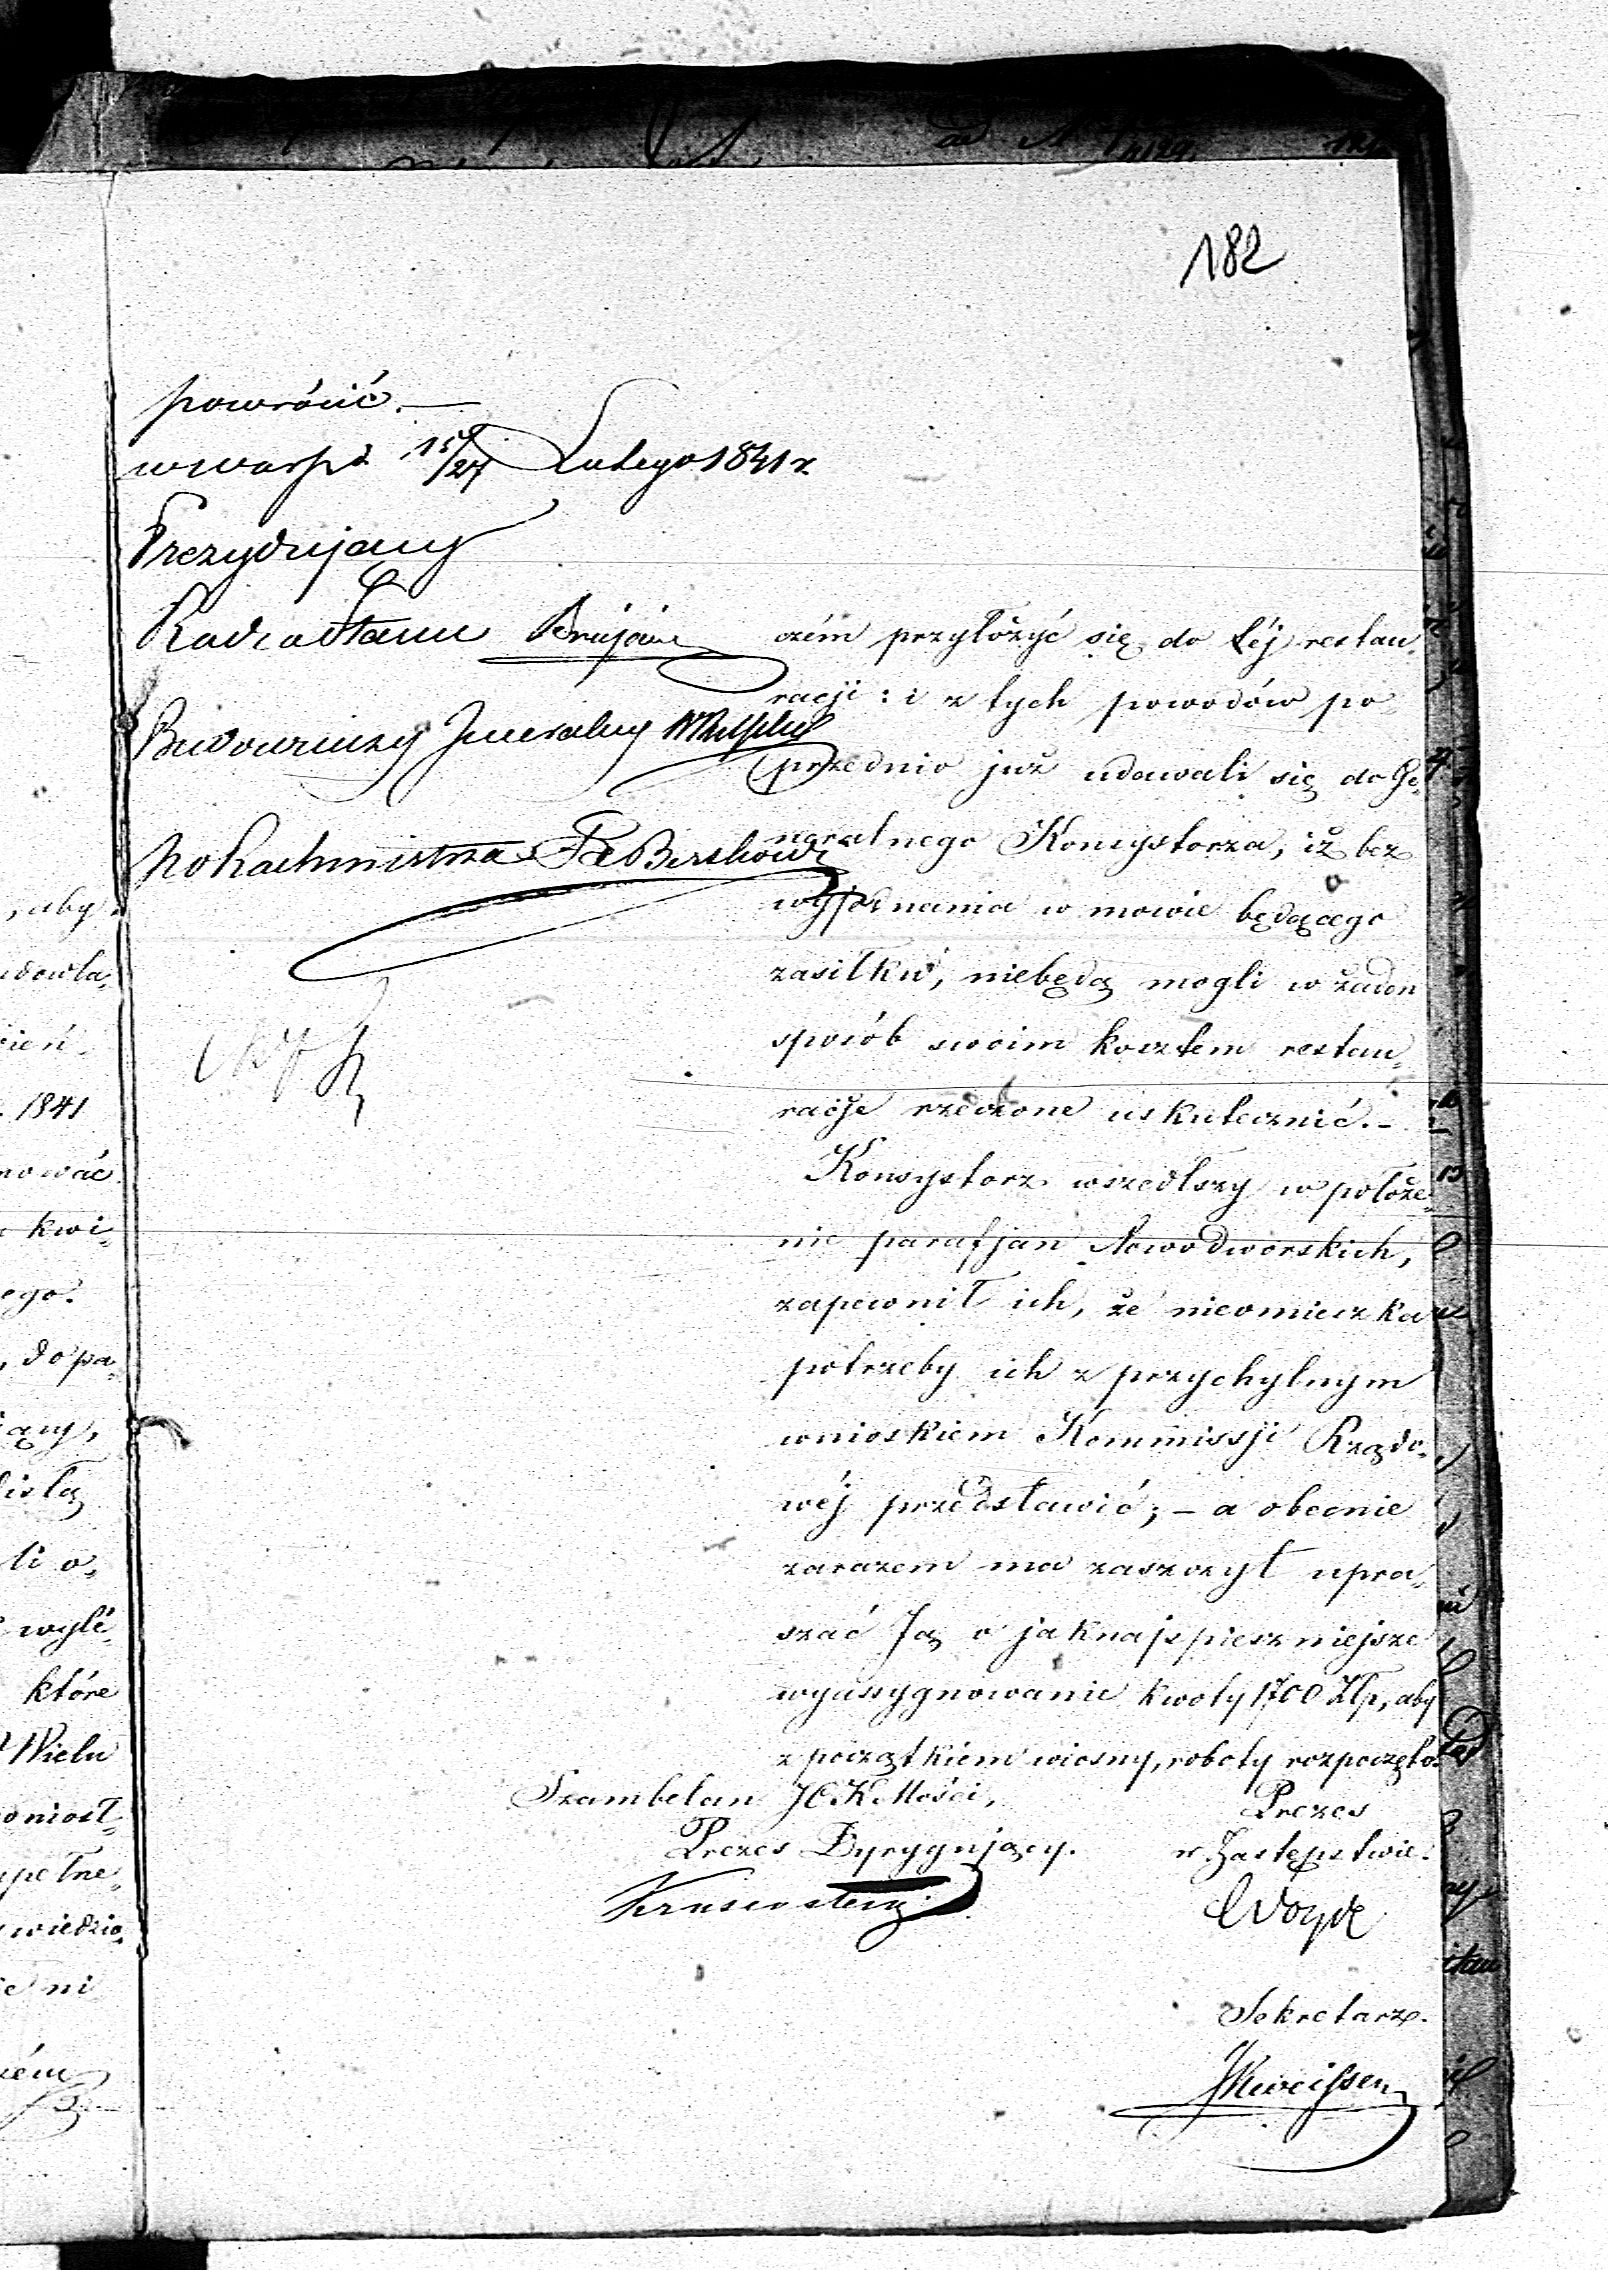 182
powrócić. —
w Warsz d 15/27 Lutego 1841 r
Prezydujący
Radca Stanu
Budowniczy Jeneralny
po Rachmistrza
czém przyłożyć się do téj restau„
racji: i z tych powodów po
przednio już udawali się do Je„
neralnego Konsystorza, iż bez
wyjednania w mowie będącego
zasiłku, niebędą mogli w żaden
sposób swoim kosztem restau„
racje rzeczone uskutecznić. –
Konsystorz wszedłszy w położe„
nie parafjan Nowodworskich,
zapewnił ich, że nieomieszka
potrzeby ich z przychylnym
wnioskiem Kommissji Rządo„
wéj przedstawić; – a obecnie
zarazem ma zaszczyt upra„
szać Ją o jaknajspieszniejsze
wyassygnowanie kwoty 1700 Złp, aby
z początkiem wiosny, roboty rozpoczęto.
Szambelan JCK Mości,
Prezes Dyrygujący.
Krusenstern
Prezes
w Zastępstwie.
Sekretarz.
, aby
1841
kwi„
ego.
, do pa„
wylé„
które
Wielu
oniosł„